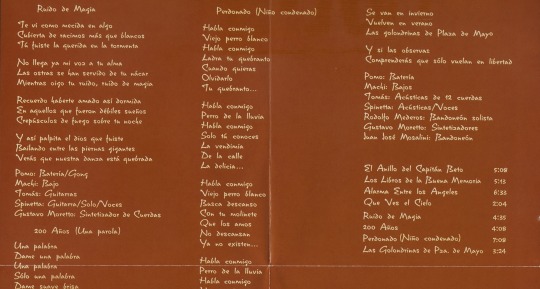 Ruido de Magia
Te ví como mecida en algo
Cubierta de racimos más que blancos
Tú fuiste la querida en la tormenta
No llega ya mi voz a tu alma
Las ostras se han servido de tu nácar
Mientras oigo tu ruido, ruido de magia
Recuerdo haberte amado así dormida
En aquellos que fueron débiles sueños
Crepúsculos de fuego sobre tu noche
Y así palpita el dios que fuiste
Bailando entre las piernas gigantes
Verás que nuestra danza está quebrada
Pomo: Batería/Gong
Machi: Bajo
Tomás: Guitarras
Spinetta: Guitarra/Solo/Voces
Gustavo Moretto: Sintetizador de Cuerdas
200 Años (Una parola)
Una palabra
Dame una palabra
Una palabra
Sólo una palabra
Dame suave brisa
Perdonado (Niño condenado)
Habla conmigo
Viejo perro blanco
Habla conmigo
Ladra tu quebranto
Cuando quieras
Olvidarlo
Tu quebranto...
Habla conmigo
Perro de la lluvia
Habla conmigo
Solo tú conoces
La vendimia
De la calle
La delicia...
Habla conmigo
Viejo perro blanco
Busca descanso
Con tu molinete
Que los amos
No descansan
Ya no existen...
Habla conmigo
Perro de la lluvia
Habla conmigo
Se van en invierno
Vuelven en verano
Las golondrinas de Plaza de Mayo
Y si las observas
Comprenderás que sólo vuelan en libertad
Pomo: Batería
Machi: Bajos
Tomás: Acústicas de 12 cuerdas
Spinetta: Acústicas/Voces
Rodolfo Mederos: Bandoneón solista
Gustavo Moretto: Sintetizadores
Juan José Mosalini: Bandoneón
El Anillo del Capitán Beto 5:08
Los Libros de la Buena Memoria 5:13
Alarma Entre los Angeles 6:33
Que Ves el Cielo 2:04
Ruido de Magia 4:35
200 Años 4:08
Perdonado (Niño condenado) 7:08
Las Golondrinas de Pza. de Mayo 3:24